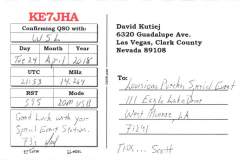 KE7JHA
Confirming QSO with
W5L
Day Month Year
Tue 24 April 2018
UTC MHz
21:53 14.267
RST Mode
595 20m USB
Good Luck with your
Special Event Station.
73s
David Kutiej
6320 Guadalupe Ave.
Las Vegas, Clark County
Nevada 89108
To:
Louisiana Purchase Special Event
111 Eagle Lake Drive
West Monroe, LA
71291
TNX... Scott